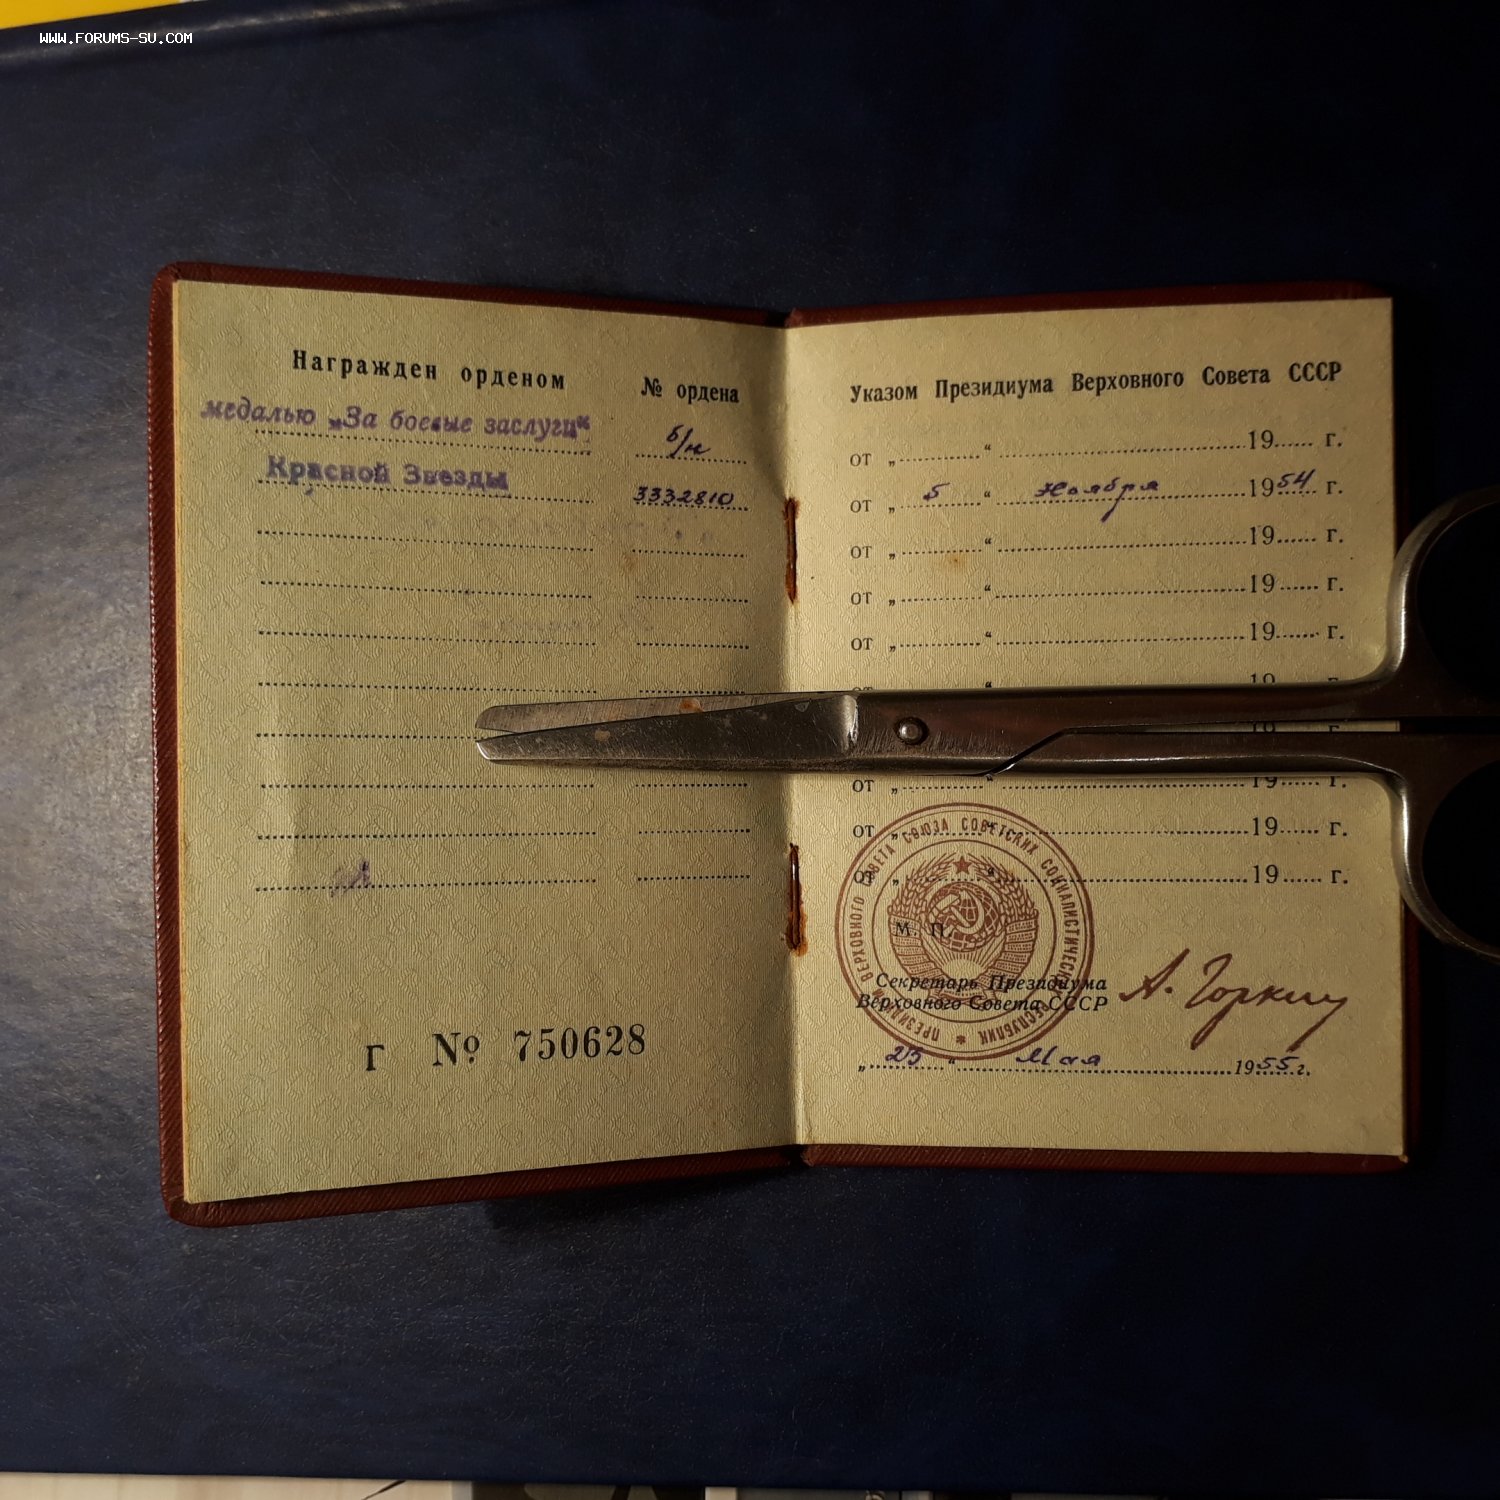 WWW.FORUMS-SU.COM
Награжден орденом
№ ордена
медалью „За боевые заслуги“
б/н
Красной Звезды
3332810
Г № 750628
Указом Президиума Верховного Совета СССР
от „ “ 19 г.
от „ 5 “ Ноября 1954 г.
от „ “ 19 г.
от „ “ 19 г.
от „ “ 19 г.
от “ 19 г.
19 г.
от „ “ 19 г.
от „ “ 19 г.
от „ “ 19 г.
М. П.
ПРЕЗИДИУМ ВЕРХОВНОГО СОВЕТА СОЮЗА СОВЕТСКИХ СОЦИАЛИСТИЧЕСКИХ РЕСПУБЛИК
Секретарь Президиума
Верховного Совета СССР
А. Горкин
„ 25 “ Мая 1955 г.